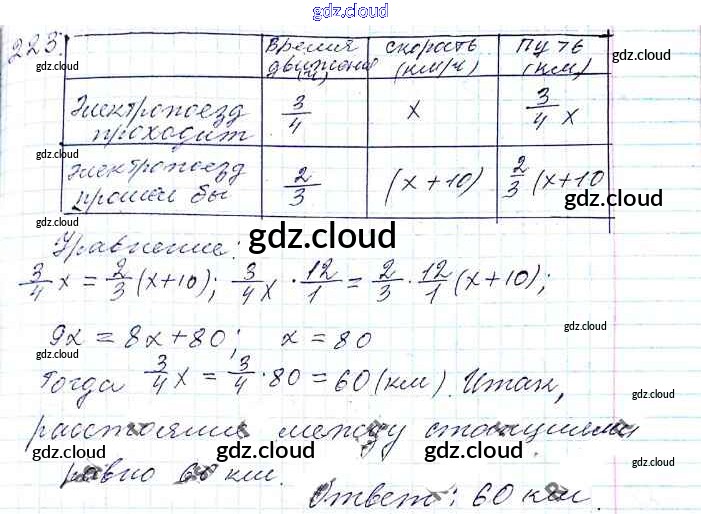 gdz.cloud
223. Время движения (ч) скорость (км/ч) Путь (км)
gdz.cloud gdz.cloud
Электропоезд проходит 3/4 x 3/4 x
gdz.cloud
Электропоезд прошёл бы 2/3 (x+10) 2/3 (x+10
gdz.cloud
gdz.cloud
Уравнение:
gdz.cloud
3/4 x = 2/3 (x+10); 3/4 x · 12/1 = 2/3 · 12/1 (x+10);
9x = 8x+80; x = 80
gdz.cloud
Тогда 3/4 x = 3/4 · 80 = 60 (км). Итак,
gdz.cloud
расстояние между станциями
gdz.cloud gdz.cloud gdz.cloud
равно 60 км.
Ответ: 60 км.
gdz.cloud gdz.cloud